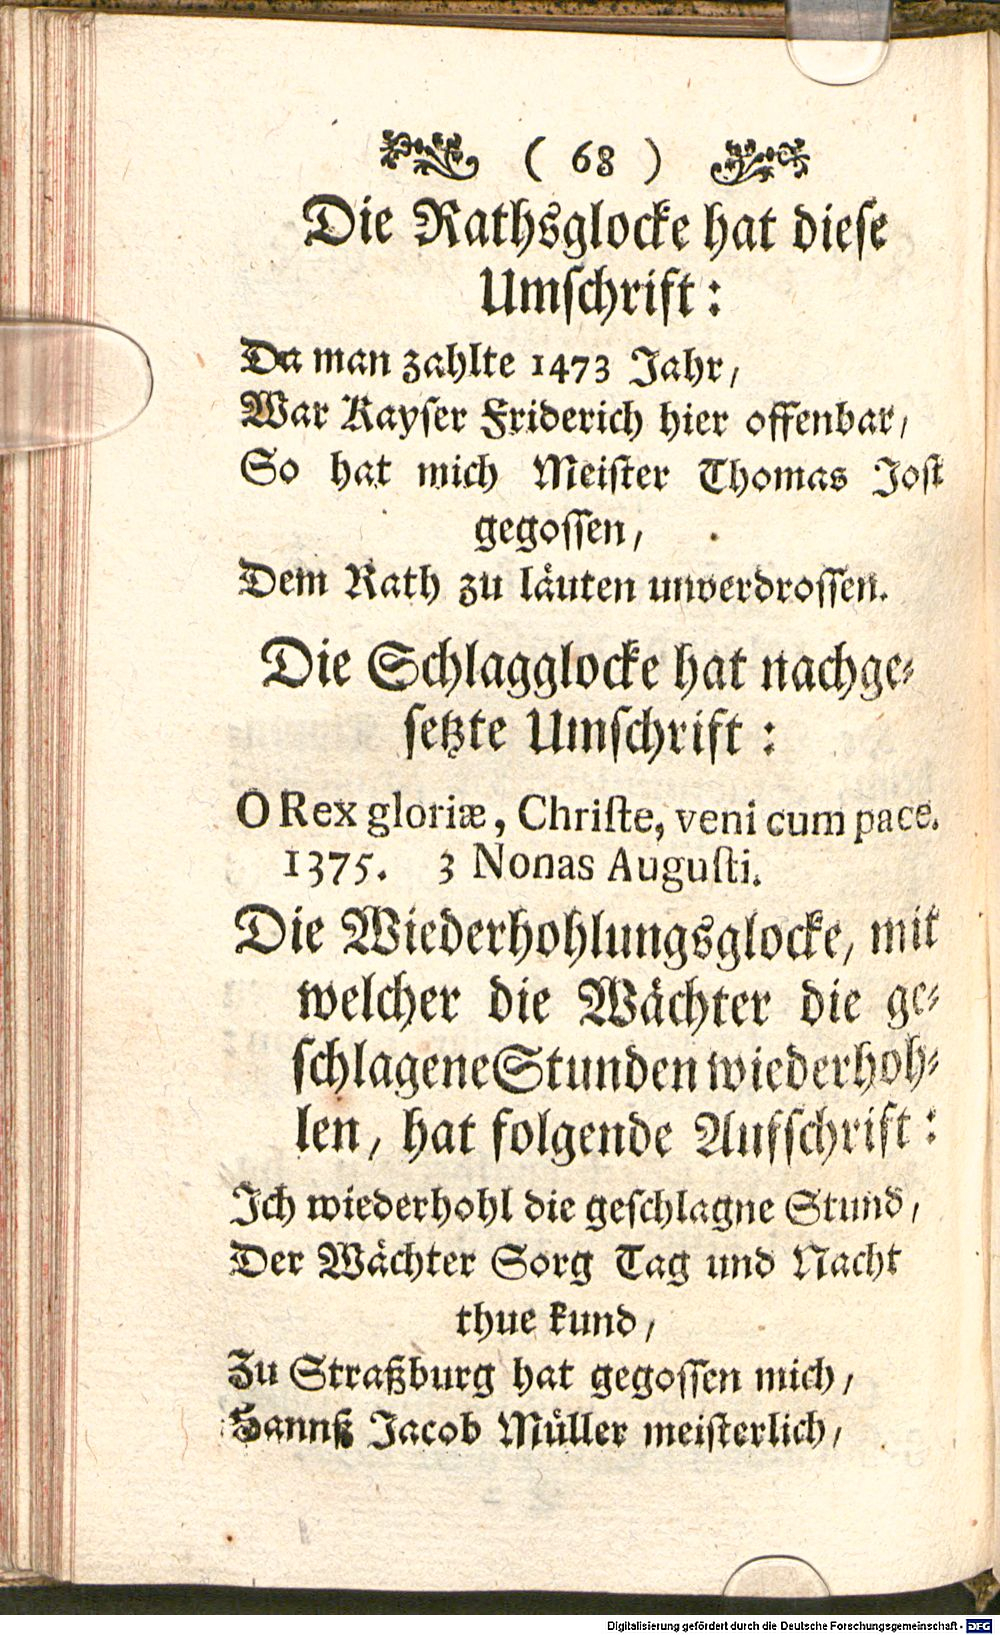 ( 68 )
Die Rathsglocke hat diese
Umschrift:
Da man zahlte 1473 Jahr,
War Kayser Friderich hier offenbar,
So hat mich Meister Thomas Jost
gegossen,
Dem Rath zu läuten unverdrossen.
Die Schlagglocke hat nachge-
setzte Umschrift:
O Rex gloriæ, Christe, veni cum pace.
1375. 3 Nonas Augusti.
Die Wiederhohlungsglocke, mit
welcher die Wächter die ge-
schlagene Stunden wiederhoh-
len, hat folgende Aufschrift:
Ich wiederhohl die geschlagne Stund,
Der Wächter Sorg Tag und Nacht
thue kund,
Zu Straßburg hat gegossen mich,
Hannß Jacob Müller meisterlich,
Digitalisierung gefördert durch die Deutsche Forschungsgemeinschaft - DFG